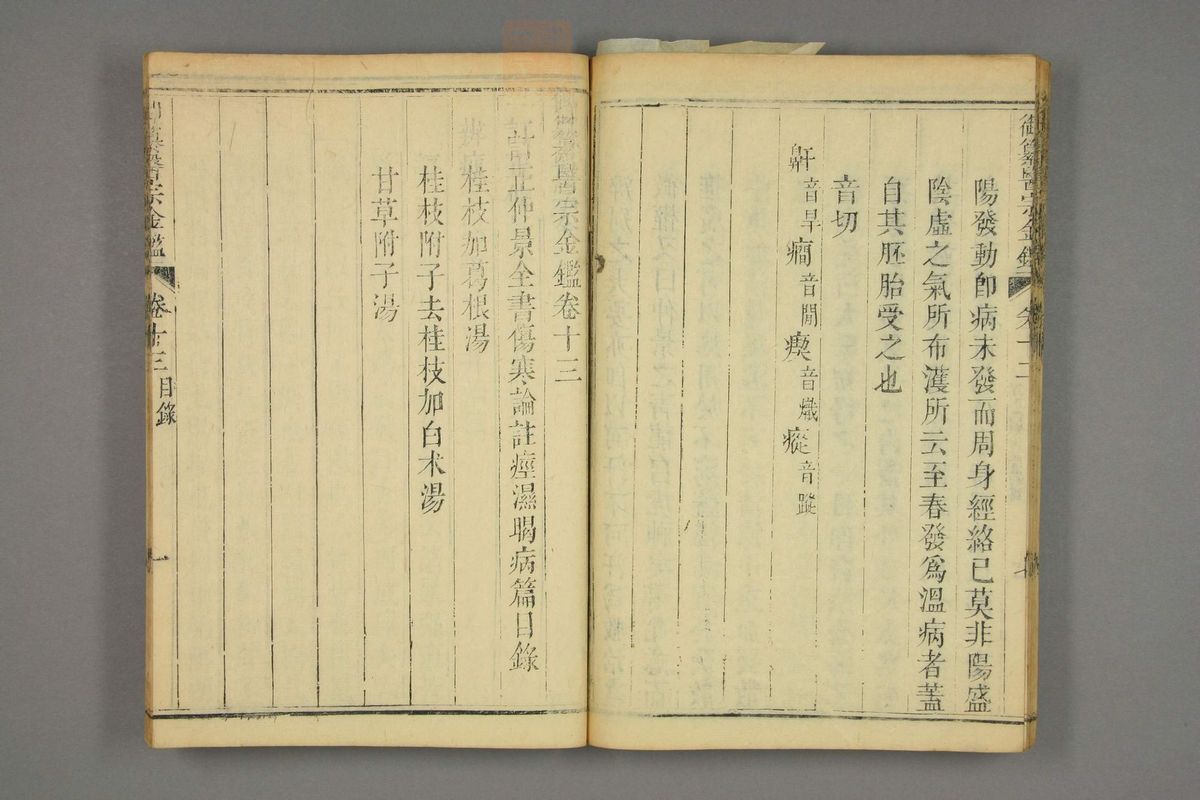 陽發動卽病未發而周身經絡已莫非陽盛
陰虛之氣所布濩所云至春發爲溫病者蓋
自其胚胎受之也
音切
鼾音旱癇音閒瘈音熾瘲音蹤
御纂醫宗金鑑卷十三
訂正仲景全書傷寒論註痙濕暍病篇目錄
桂枝加葛根湯
桂枝附子去桂枝加白朮湯
甘草附子湯
御纂醫宗金鑑
卷十三目錄
一